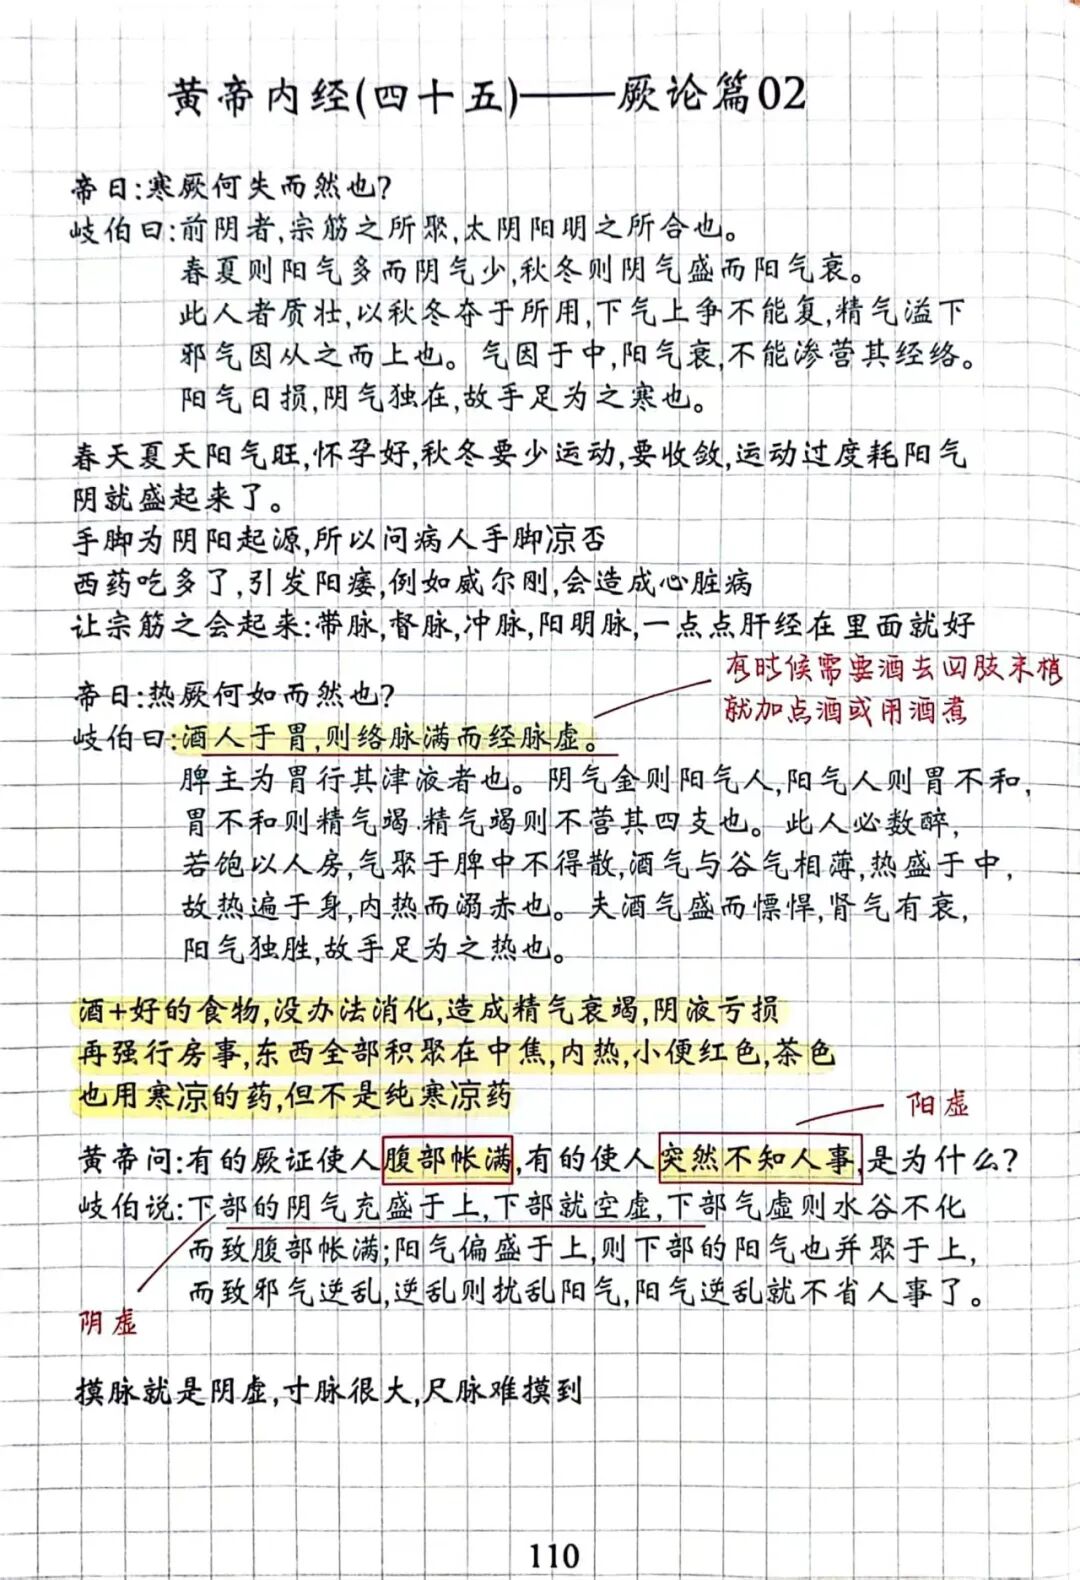 黄帝内经(四十五)——厥论篇02
帝曰:寒厥何失而然也?
岐伯曰:前阴者,宗筋之所聚,太阴阳明之所合也。
春夏则阳气多而阴气少,秋冬则阴气盛而阳气衰。
此人者质壮,以秋冬夺于所用,下气上争不能复,精气溢下
邪气因从之而上也。气因于中,阳气衰,不能渗营其经络。
阳气日损,阴气独在,故手足为之寒也。
春天夏天阳气旺,怀孕好,秋冬要少运动,要收敛,运动过度耗阳气
阴就盛起来了。
手脚为阴阳起源,所以问病人手脚凉否
西药吃多了,引发阳痿,例如威尔刚,会造成心脏病
让宗筋之会起来:带脉,督脉,冲脉,阳明脉,一点点肝经在里面就好
有时候需要酒去四肢末梢
就加点酒或用酒煮
帝曰:热厥何如而然也?
岐伯曰:酒人于胃,则络脉满而经脉虚。
脾主为胃行其津液者也。阴气金则阳气人,阳气人则胃不和,
胃不和则精气竭.精气竭则不营其四支也。此人必数醉,
若饱以人房,气聚于脾中不得散,酒气与谷气相薄,热盛于中,
故热遍于身,内热而溺赤也。夫酒气盛而慓悍,肾气有衰,
阳气独胜,故手足为之热也。
酒+好的食物,没办法消化,造成精气衰竭,阴液亏损
再强行房事,东西全部积聚在中焦,内热,小便红色,茶色
也用寒凉的药,但不是纯寒凉药
阳虚
黄帝问:有的厥证使人腹部帐满,有的使人突然不知人事,是为什么?
岐伯说:下部的阴气充盛于上,下部就空虚,下部气虚则水谷不化
而致腹部帐满;阳气偏盛于上,则下部的阳气也并聚于上,
而致邪气逆乱,逆乱则扰乱阳气,阳气逆乱就不省人事了。
阴虚
摸脉就是阴虚,寸脉很大,尺脉难摸到
110